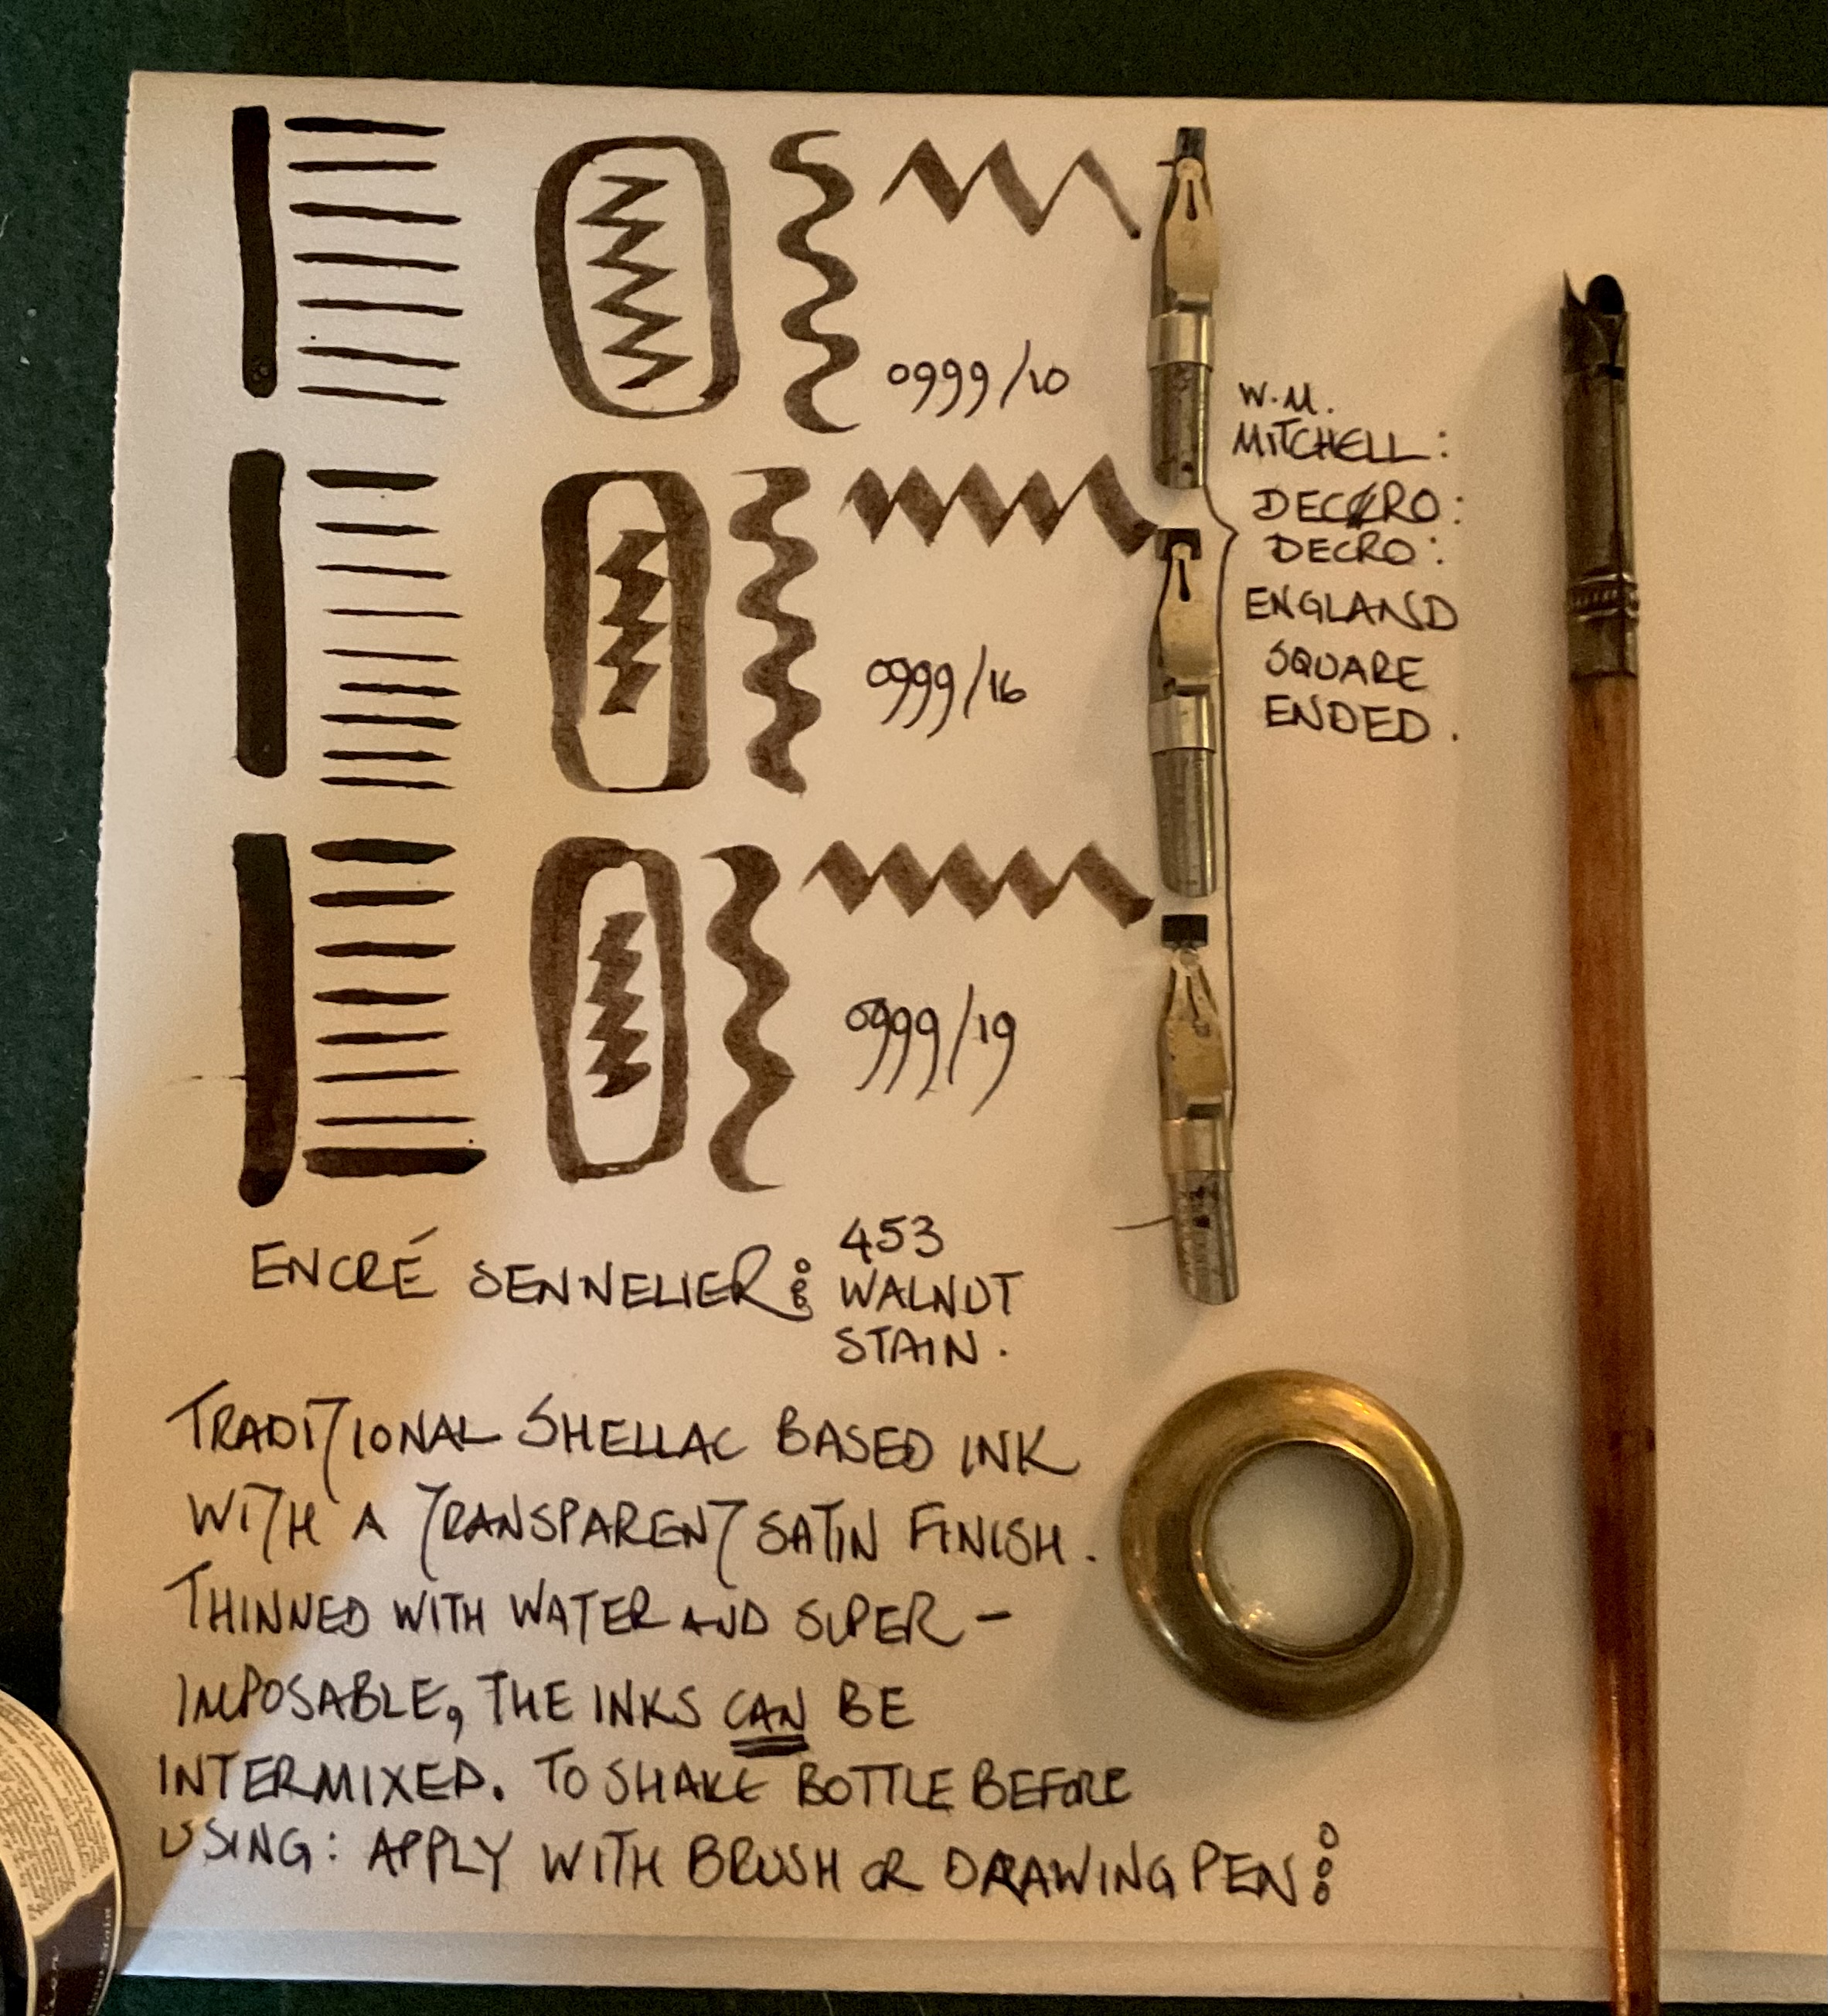 0999/10
W.M.
MITCHELL:
DECRO:
DECRO:
ENGLAND
SQUARE
ENDED.
0999/16
0999/19
ENCRÉ SENNELIER: 453
WALNUT
STAIN.
TRADITIONAL SHELLAC BASED INK
WITH A TRANSPARENT SATIN FINISH.
THINNED WITH WATER AND SUPER-
IMPOSABLE, THE INKS CAN BE
INTERMIXED. TO SHAKE BOTTLE BEFORE
USING: APPLY WITH BRUSH OR DRAWING PEN: